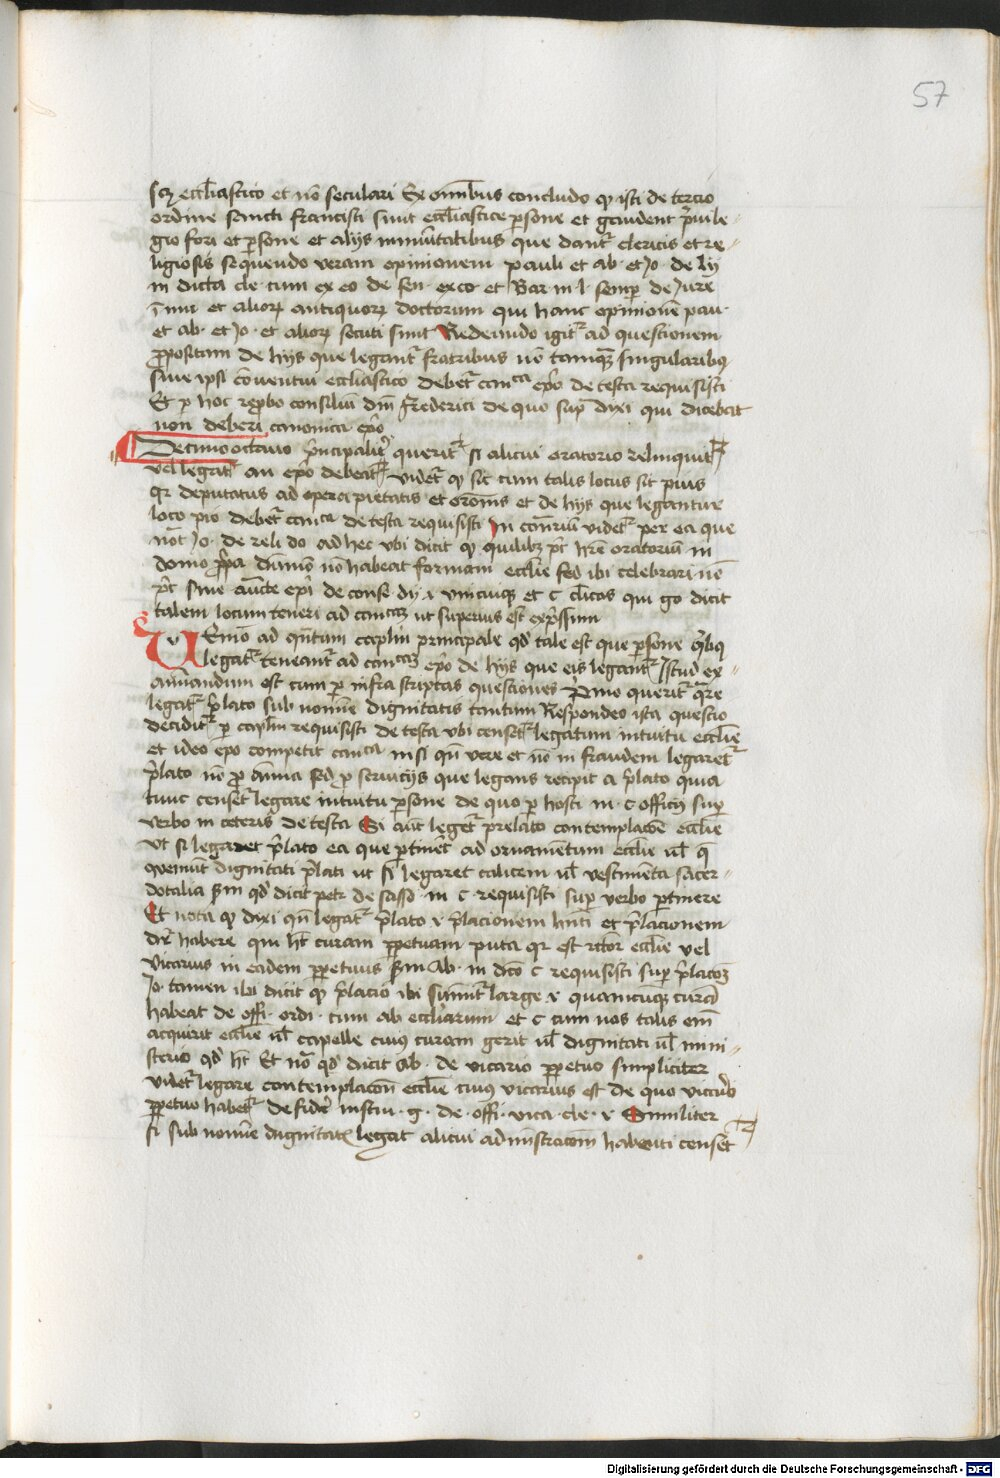 57
scz eccl̄iastico et nō seculari Ex omībus concludo qꝫ isti de tercio
ordine sancti francisci sunt eccl̄iastice ꝑsone et gaudent p̄uile-
gio fori et ꝑsone et alijs immūitatibus que dant᷑ clericis et re-
ligiosis sequendo veram opinionem pauli et ab· et Jo· de ly
in dicta cle· cum ex eo de sen· exco· et Bar· in l· semꝑ de Iure
īmu· et alioꝝ antiquoꝝ doctorum qui hanc opinionē pau·
et ab· et Jo· et alioꝝ secuti sunt Redeundo igit᷑ ad questionem
ꝓpositam de hijs que legant᷑ fratribus nō tamqꝫ singularibꝫ
siue ipsi cōuentui eccl̄iastico debet᷑ can̄ca ep̄o de testa requisisti
Et ꝑ hoc reꝓbo consiliū dn̄i frederici de quo supͣ dixi qui dicebat
non deberi canonica ep̄o
Decimooctauo p̄ncipalit᷑ querit᷑ si alicui oratorio relinquit᷑
vel legat᷑ an ep̄o debeat᷑ videt᷑ qꝫ sic cum talis locus sit pius
qꝛ deputatus ad opera pietatis et orōnis et de hijs que legantur
loco pio debet᷑ can̄ca de testa requisisti In cōn̄riū videt᷑ per ea que
not̄ Jo· de reli do ad hec vbi dicit qꝫ quilibꝫ pōt h̄re oratoriū in
domo ꝓp̄a dūmō nō habeat formam eccl̄ie sed ibi celebrari nō
pōt sine aucte ep̄i de conse· di· i· vnicuiqꝫ et c· cl̄icos qui g̊ dicit
talem locum teneri ad can̄cam ut superius est exp̄ssum
Uenio ad qn̄tum cap̄lm principale qd̄ tale est que ꝑsone q̄bꝫ
legat᷑ teneant᷑ ad can̄cam ep̄o de hijs que eis legant᷑ Istud ex-
aminandum est cum ꝑ infra scriptas questiones P̄mo querit᷑ q̄re
legat᷑ p̄lato sub nomīe dignitatis tantum Respondeo ista questio
decidit᷑ ꝑ cap̄lm requisisti de testa vbi censet᷑ legatum intuitu eccl̄ie
et ideo ep̄o competit can̄ca nisi qn̄ vere et nō in fraudem legaret᷑
p̄lato nō ꝓ an̄ima sed ꝓ seruicijs que legans recipit a p̄lato quia
tunc censet᷑ legare intuitu ꝑsone de quo ꝑ hosti in c officij suꝑ
verbo in ceteris de testa Si aut̄ leget᷑ prelato contemplacōe eccl̄ie
vt si legaret p̄lato ea que ꝑtinēt ad ornamentum eccl̄ie ul̄ q̄
ꝯueniūt dignitati p̄lati ut si legaret calicem ul̄ vestimēta sacer-
dotalia ẜm qd̄ dicit petr de saſſo· in c· requisisti suꝑ verbo ꝑtinere
Et nota qꝫ dixi qn̄ legat᷑ p̄lato ⁊ p̄lacionem hn̄ti et p̄lacionem
dr̄ habere qui h̄t curam ꝑpetuam puta qꝛ est rc̄tor eccl̄ie vel
vicarius in eadem ꝑpetuus ẜm Ab· in dc̄o c requisisti suꝑ p̄lacōꝫ
Jo· tamen ibi dicit qꝫ p̄lacio ibi sumit᷑ large ⁊ quamcūqꝫ curā
habeat de offi· ordi· cum ab eccl̄iarum et c cum vos talis em̄
acquirit eccl̄ie ul̄ capelle cuiꝰ curam gerit ul̄ dignitati ul̄ mini-
sterio qd̄ h̄t Et nō qd̄ dicit Ab· de vicario ꝑpetuo simpliciter
videt᷑ legare contemplacōn eccl̄ie cuiꝰ vicarius est de quo vicario
ꝑpetuo habet᷑ de fide instru· g· de· offi· vica· cle· ⁊ Similiter
si sub nomīe dignitat᷑ legat alicui ad ministracōem habenti censet᷑
Digitalisierung gefördert durch die Deutsche Forschungsgemeinschaft - DFG